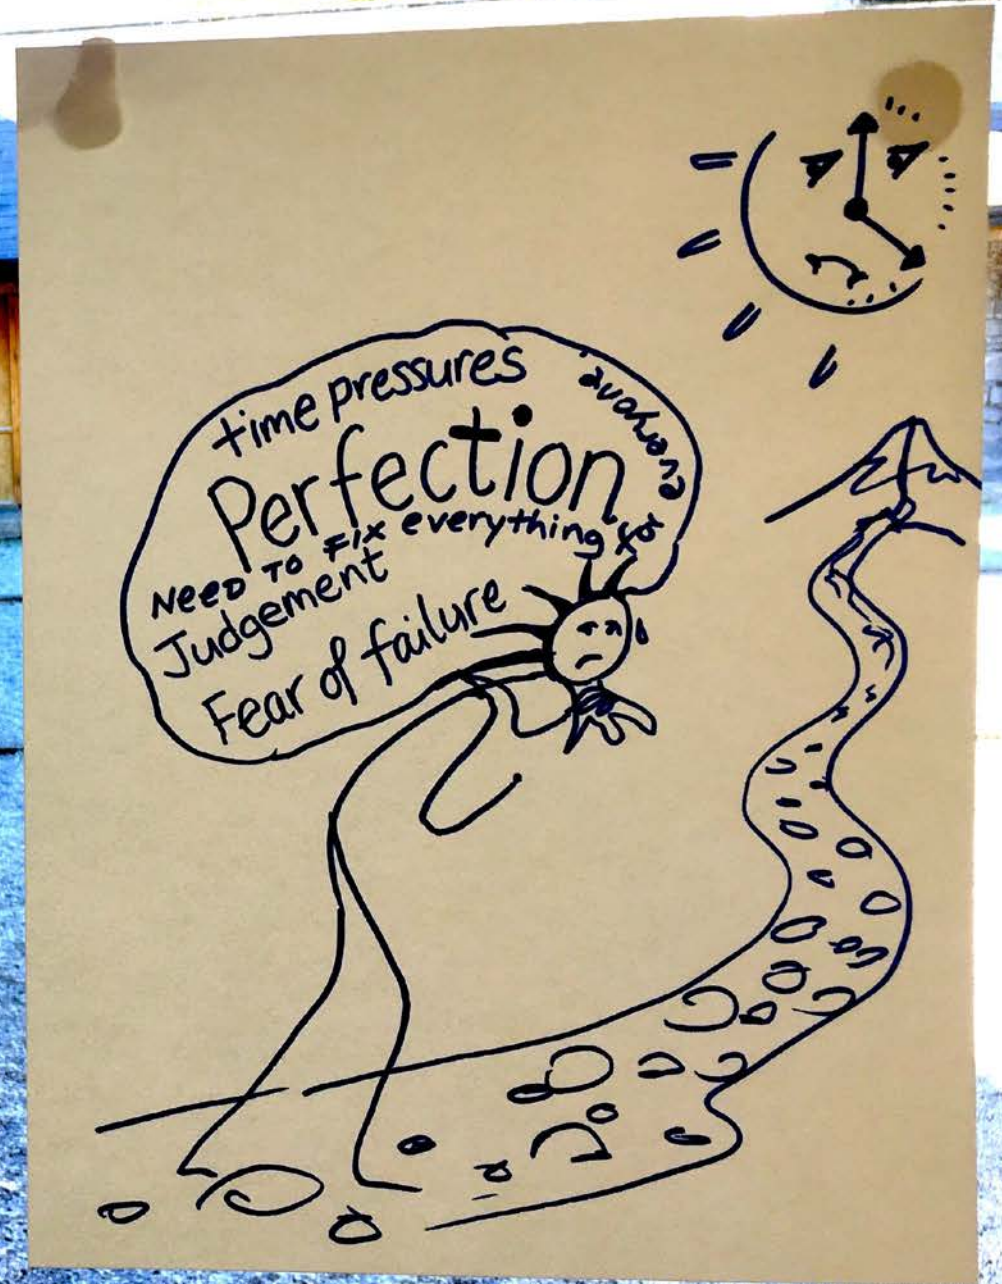 time pressures
Perfection
NEED TO FIX everything for everyone
Judgement
Fear of failure